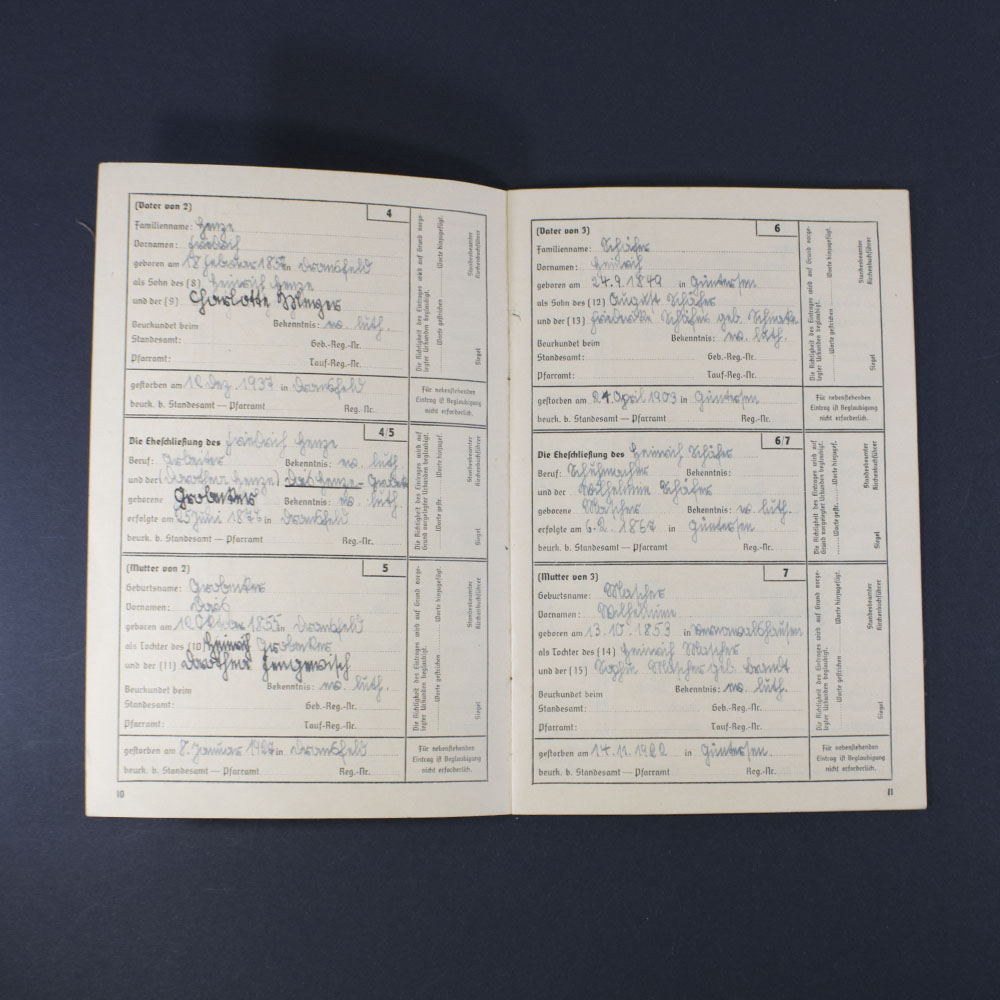 (Vater von 2) 4
Familienname: Henze
Vornamen: Friedrich
geboren am 18 Februar 185 in Dransfeld
als Sohn des (8) Heinrich Henze
und der (9) Charlotte
Beurkundet beim Bekenntnis: ev. luth.
Standesamt: Geb.-Reg.-Nr.
Pfarramt: Tauf-Reg.-Nr.
gestorben am Dez. 1937 in Dransfeld
beurk. b. Standesamt — Pfarramt Reg. Nr.
Die Richtigkeit des Eintrages wird auf Grund vorge-
legter Urkunden beglaubigt.
Worte hinzugefügt.
Worte gestrichen
Standesbeamter
Kirchenbuchführer
Siegel
Für nebenstehenden
Eintrag ist Beglaubigung
nicht erforderlich.
4/5
Die Eheschließung des Friedrich Henze
Beruf: Arbeiter Bekenntnis: ev. luth.
und der (Dorothea Henze)
geborene Bekenntnis: ev. luth.
erfolgte am 25 Juni in Dransfeld
beurk. b. Standesamt — Pfarramt Reg.-Nr.
Die Richtigkeit des Eintrages wird auf
Grund vorgelegter Urkunden beglaubigt.
Worte hinzugef.
Worte gestr.
Standesbeamter
Kirchenbuchführer
Siegel
(Mutter von 2) 5
Geburtsname:
Vornamen:
geboren am Oktober 1855 in Dransfeld
als Tochter des (10) Heinrich
und der (11) Dorothea
Beurkundet beim Bekenntnis: ev. luth.
Standesamt: Geb.-Reg.-Nr.
Pfarramt: Tauf-Reg.-Nr.
gestorben am 8. Januar in Dransfeld
beurk. b. Standesamt — Pfarramt Reg.-Nr.
Die Richtigkeit des Eintrages wird auf Grund vorge-
legter Urkunden beglaubigt.
Worte hinzugefügt.
Worte gestrichen
Standesbeamter
Kirchenbuchführer
Siegel
Für nebenstehenden
Eintrag ist Beglaubigung
nicht erforderlich.
10
(Vater von 3) 6
Familienname: Schäfer
Vornamen: Heinrich
geboren am 24.9.1849 in Güntersen
als Sohn des (12) August Schäfer
und der (13) Friederike Schäfer geb.
Beurkundet beim Bekenntnis: ev. luth.
Standesamt: Geb.-Reg.-Nr.
Pfarramt: Tauf-Reg.-Nr.
gestorben am 24 April 1903 in Güntersen
beurk. b. Standesamt — Pfarramt Reg.-Nr.
Die Richtigkeit des Eintrages wird auf Grund vorge-
legter Urkunden beglaubigt.
Worte hinzugefügt.
Worte gestrichen
Standesbeamter
Kirchenbuchführer
Siegel
Für nebenstehenden
Eintrag ist Beglaubigung
nicht erforderlich.
6/7
Die Eheschließung des Heinrich Schäfer
Beruf: Schuhmacher Bekenntnis:
und der Wilhelmine Schäfer
geborene Bekenntnis: ev. luth.
erfolgte am 6.2. in Güntersen
beurk. b. Standesamt — Pfarramt Reg.-Nr.
Die Richtigkeit des Eintrages wird auf
Grund vorgelegter Urkunden beglaubigt.
Worte hinzugef.
Worte gestr.
Standesbeamter
Kirchenbuchführer
Siegel
(Mutter von 3) 7
Geburtsname:
Vornamen: Wilhelmine
geboren am 13.10.1853 in
als Tochter des (14) Heinrich
und der (15) Sophie geb. Brandt
Beurkundet beim Bekenntnis: ev. luth.
Standesamt: Geb.-Reg.-Nr.
Pfarramt: Tauf-Reg.-Nr.
gestorben am 14.11.1922 in Güntersen.
beurk. b. Standesamt — Pfarramt Reg.-Nr.
Die Richtigkeit des Eintrages wird auf Grund vorge-
legter Urkunden beglaubigt.
Worte hinzugefügt.
Worte gestrichen
Standesbeamter
Kirchenbuchführer
Siegel
Für nebenstehenden
Eintrag ist Beglaubigung
nicht erforderlich.
11